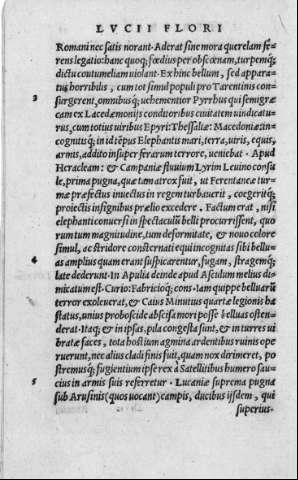 LVCII FLORI
Romani nec satis norant. Aderat sine mora querelam fe-
rens legatio: hanc quoq; fœdius per obscœnam, turpemq;
dictu contumeliam uiolant. Ex hinc bellum, sed appara-
tus horribilis, cum tot simul populi pro Tarentinis con-
3 surgerent, omnibusq; uehementior Pyrrhus qui semigræ
cam ex Lacedæmonijs conditoribus ciuitatem uindicatu-
rus, cum totius uiribus Epyri Thessaliæ: Macedoniæ: in-
cognitisq; in id tẽpus Elephantis mari, terra, uiris, equis,
armis, addito insuper ferarum terrore, ueniebat. Apud
Heracleam: & Campaniæ fluuium Lyrim Leuino consu
le, prima pugna, quæ tam atrox fuit, ut Ferentanæ tur-
mæ præfectus inuectus in regem turbauerit, coegeritq;
proiectis insignibus prælio excedere. Factum erat, nisi
elephanti conuersi in spectaculũ belli procurrissent, quo
rum tum magnitudine, tum deformitate, & nouo colore
simul, ac stridore consternati equi incognitas sibi bellu-
4 as amplius quam erant suspicarentur, fugam, stragemq;
late dederunt. In Apulia deinde apud Asculum melius di
micatum est. Curio: Fabricioq; cons. iam quippe belluarũ
terror exoleuerat, & Caius Minutius quartæ legionis ha
status, unius proboscide abscisa mori posse belluas osten-
derat. Itaq; & in ipsas pila congesta sunt, & in turres ui
bratæ faces, tota hostium agmina ardentibus ruinis ope
ruerunt, nec alius cladi finis fuit, quam nox dirimeret, po
stremusq; fugientium ipse rex à Satellitibus humero sau-
5 cius in armis suis referretur. Lucaniæ suprema pugna
sub Arusinis (quos uocant) campis, ducibus ijsdem, qui
superius.